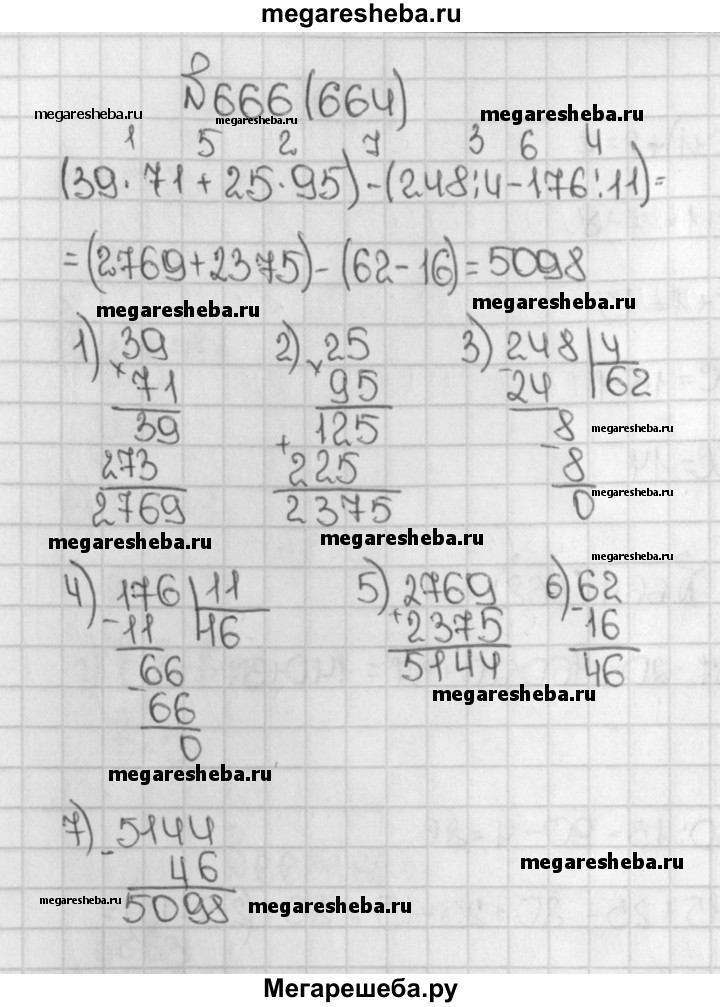 megaresheba.ru
№666 (664)
megaresheba.ru megaresheba.ru megaresheba.ru
1 5 2 7 3 6 4
(39·71+25·95)-(248:4-176:11)=
=(2769+2375)-(62-16)=5098
megaresheba.ru megaresheba.ru
1) 39 2) 25 3) 248 | 4
× 71 × 95 - 24 | 62
39 125 8 megaresheba.ru
273 + 225 - 8
2769 2375 0 megaresheba.ru
megaresheba.ru megaresheba.ru
megaresheba.ru
4) 176 | 11 5) 2769 6) 62
- 11 | 16 + 2375 - 16
66 5144 46
- 66 megaresheba.ru
0
megaresheba.ru
7) 5144
- 46 megaresheba.ru
megaresheba.ru 5098 megaresheba.ru
Мегарешеба.ру